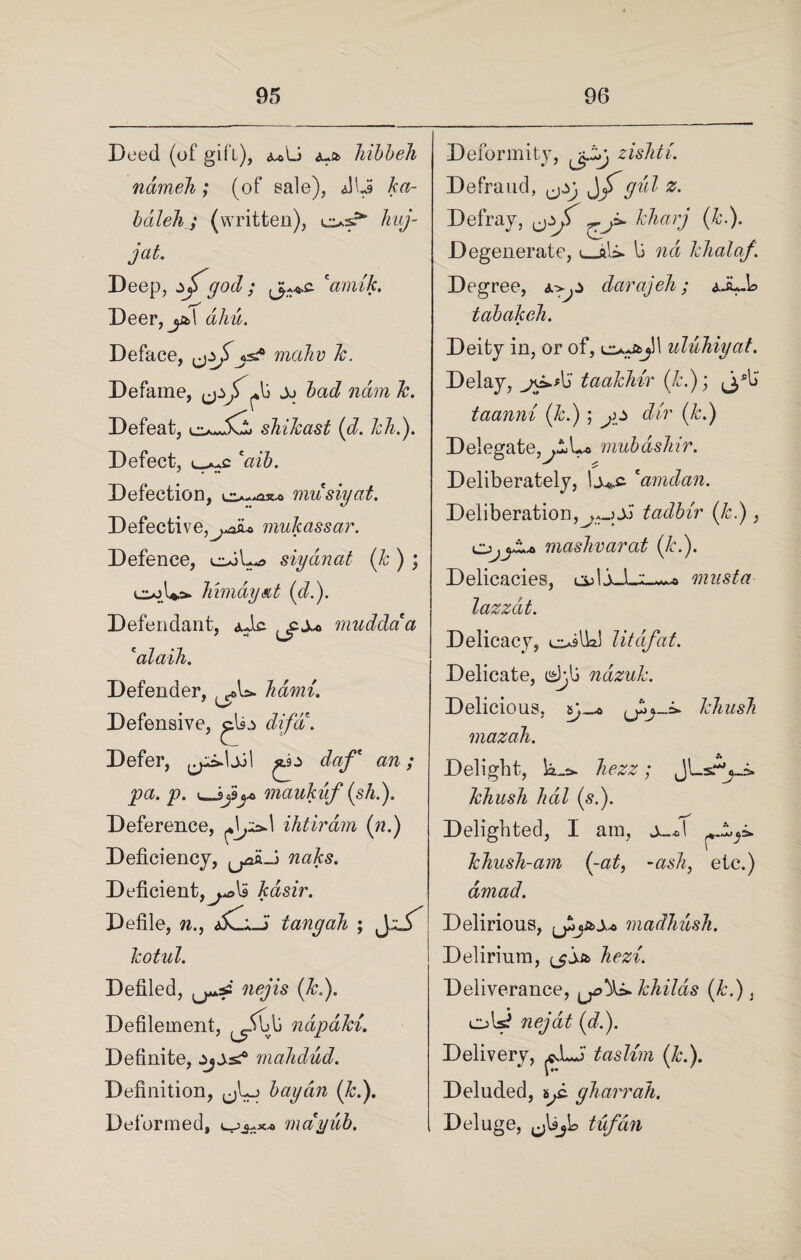 95
96
Deed (of gift), هبه نامه hibbeh
námeh; (of sale), قباله ka-
báleh; (written), حجت huj-
jat.
Deep, گود god; عمیق ʿamík.
Deer, آهو áhú.
Deface, محو کردن mahv k.
Defame, بد نام کردن bad nám k.
Defeat, شکست shikast (d. kh.).
Defect, عیب ʿaib.
Defection, معصیت muʿsiyat.
Defective, مقصر mukassar.
Defence, صیانت siyánat (k );
حمایت himáyat (d.).
Defendant, مدعی علیه muddaʿa
ʿalaih.
Defender, حامی hámí.
Defensive, دفاع difáʿ.
Defer, دفع انداختن dafʿ an;
pa. p. موقوف maukúf (sh.).
Deference, احترام ihtirám (n.)
Deficiency, نقص naks.
Deficient, قاصر kásir.
Defile, n., تنگه tangah ; کتل
kotul.
Defiled, نجس nejis (k.).
Defilement, ناپاکی nápákí.
Definite, محدود mahdúd.
Definition, بیان bayán (k.).
Deformed, معیوب maʿyúb.
Deformity, زشتی zishtí.
Defraud, گول زدن gúl z.
Defray, خرج کردن kharj (k.).
Degenerate, نا خلف ná khalaf.
Degree, درجه darajeh; طبقه
tabakeh.
Deity in, or of, الوهیت ulúhiyat.
Delay, تاخیر taakhír (k.); تأنی
taanní (k.) ; دیر dír (k.)
Delegate, مباشر mubáshir.
Deliberately, عمدا ʿamdan.
Deliberation, تدبیر tadbír (k.),
مشورت mashvarat (k.).
Delicacies, مستلذات musta
lazzát.
Delicacy, لطافت litáfat.
Delicate, نازک názuk.
Delicious, خوش مزه khush
mazah.
Delight, حظ hezz; خوشحال
khush hál (s.).
Delighted, I am, خوشم آمد
khush-am (-at, -ash, etc.)
ámad.
Delirious, مدهوش madhúsh.
Delirium, هذی hezí.
Deliverance, خلاص khilás (k.),
نجات neját (d.).
Delivery, تسلیم taslím (k.).
Deluded, غره gharrah.
Deluge, طوفان túfán